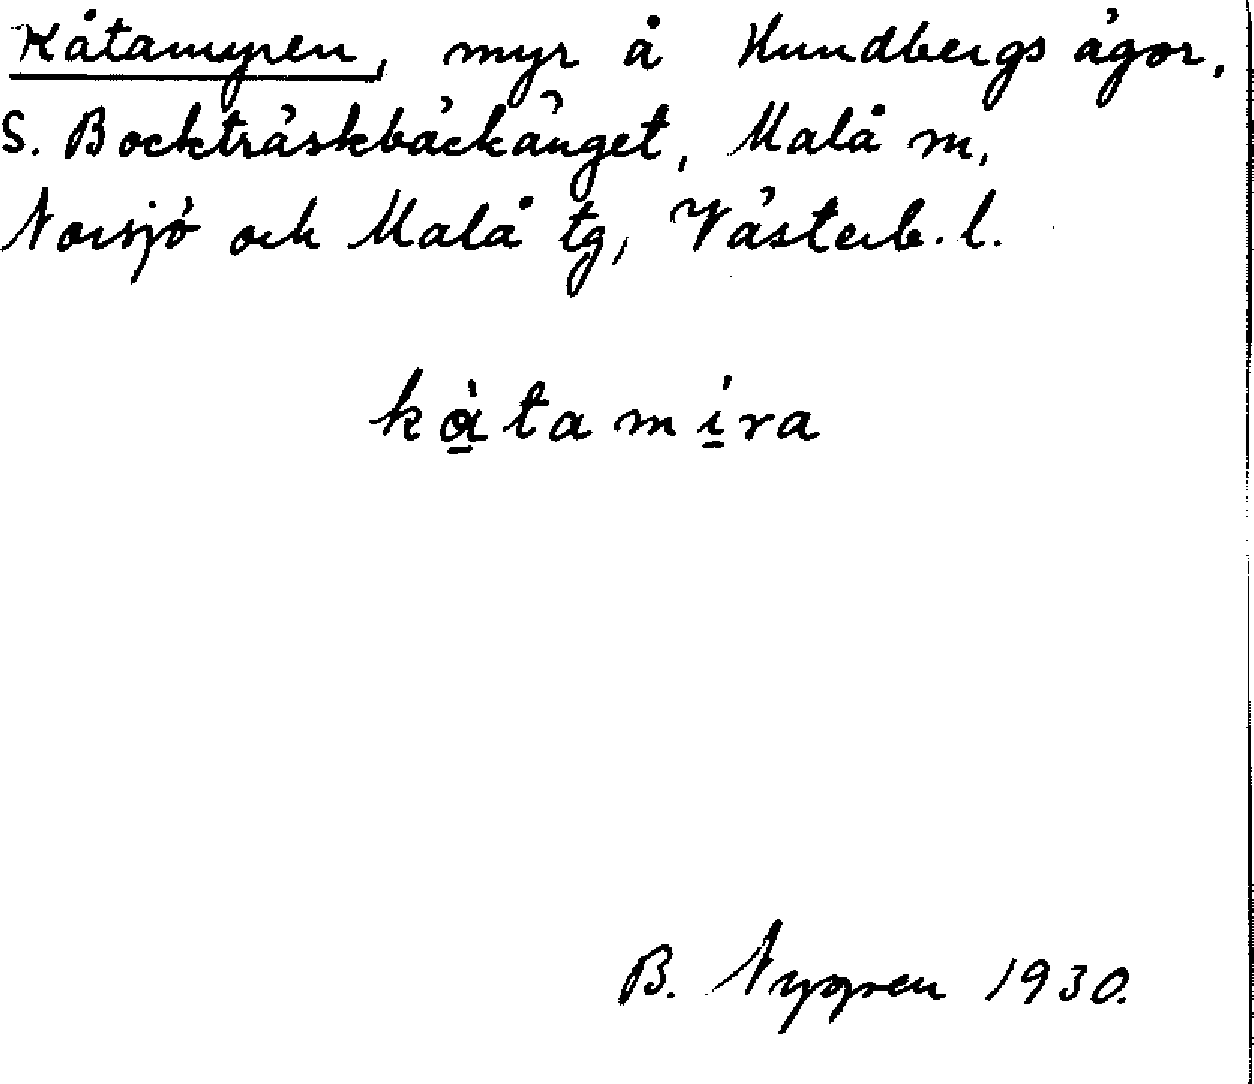 Kåtamyren, myr å Hundbergs ägor,
S. Bockträskbäckänget, Malå sn,
Norsjö och Malå tg, Västerb. l.
kɑ̠̀tamí̠ra
B. Nygren 1930.